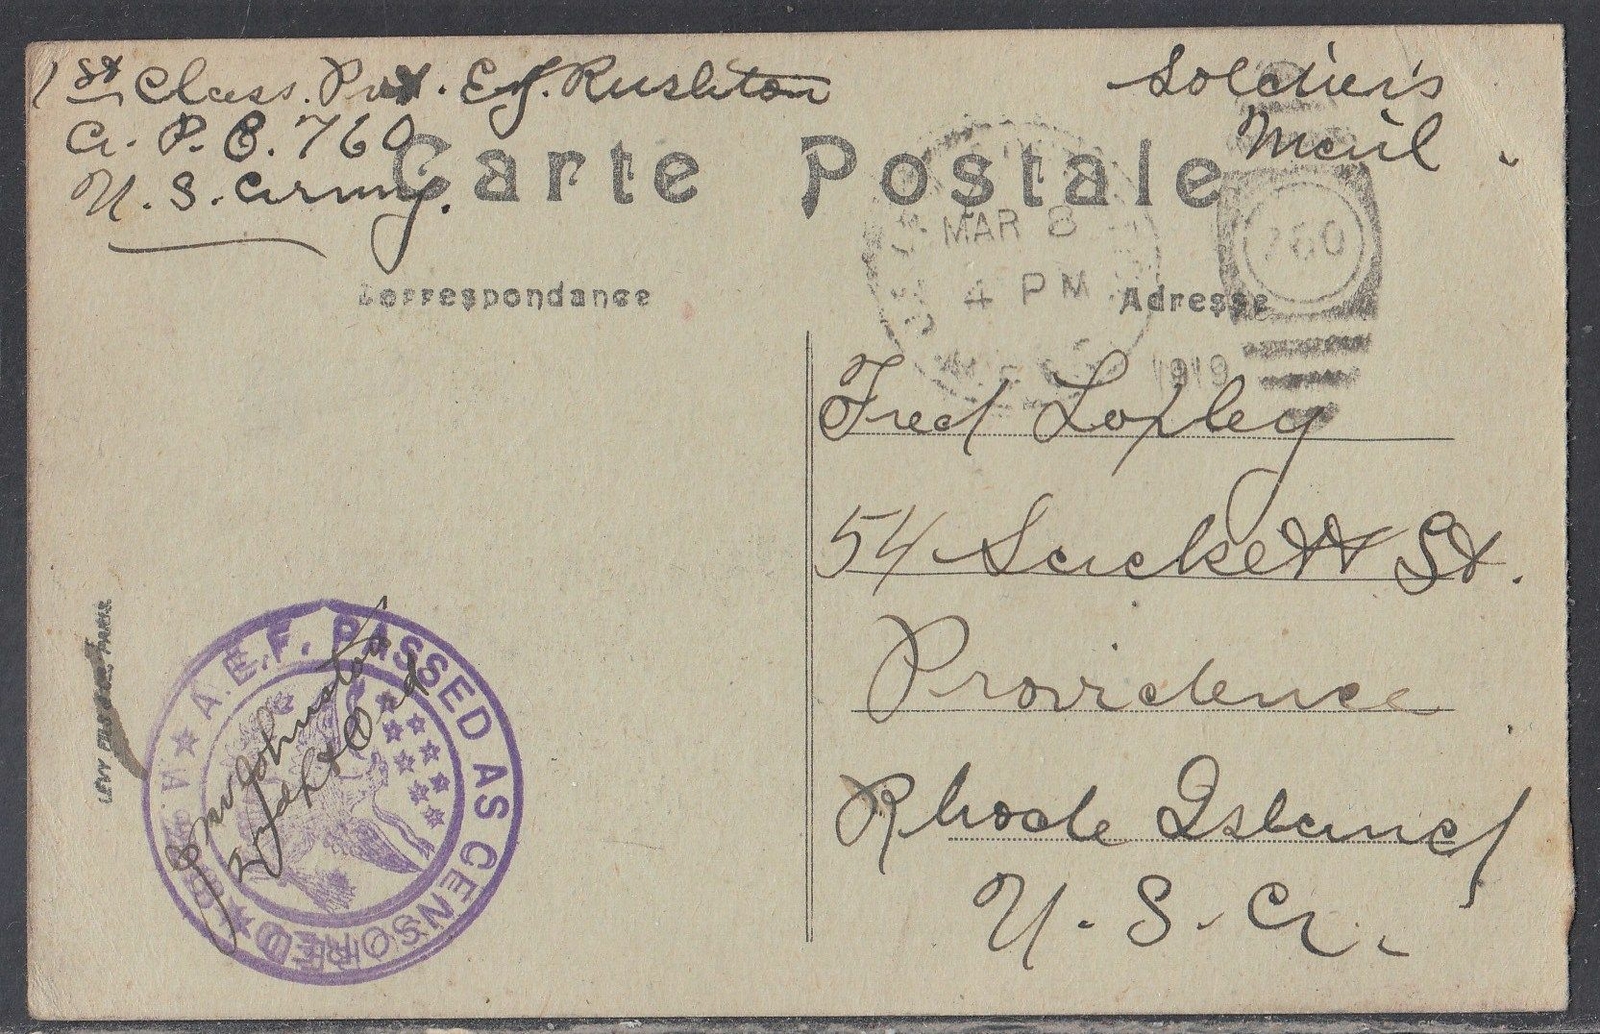 1st Class. Pvt. E.J. Rushton
A. P. O. 760
U. S. Army.
Soldier's
Mail.
Carte Postale
MAR 8
4 PM
1919
760
Correspondance
Adresse
Fred Lopley
54 Sackett St.
Providence
Rhode Island
U. S. A.
LEVY FILS PARIS
A.E.F. PASSED AS CENSORED
Johnston